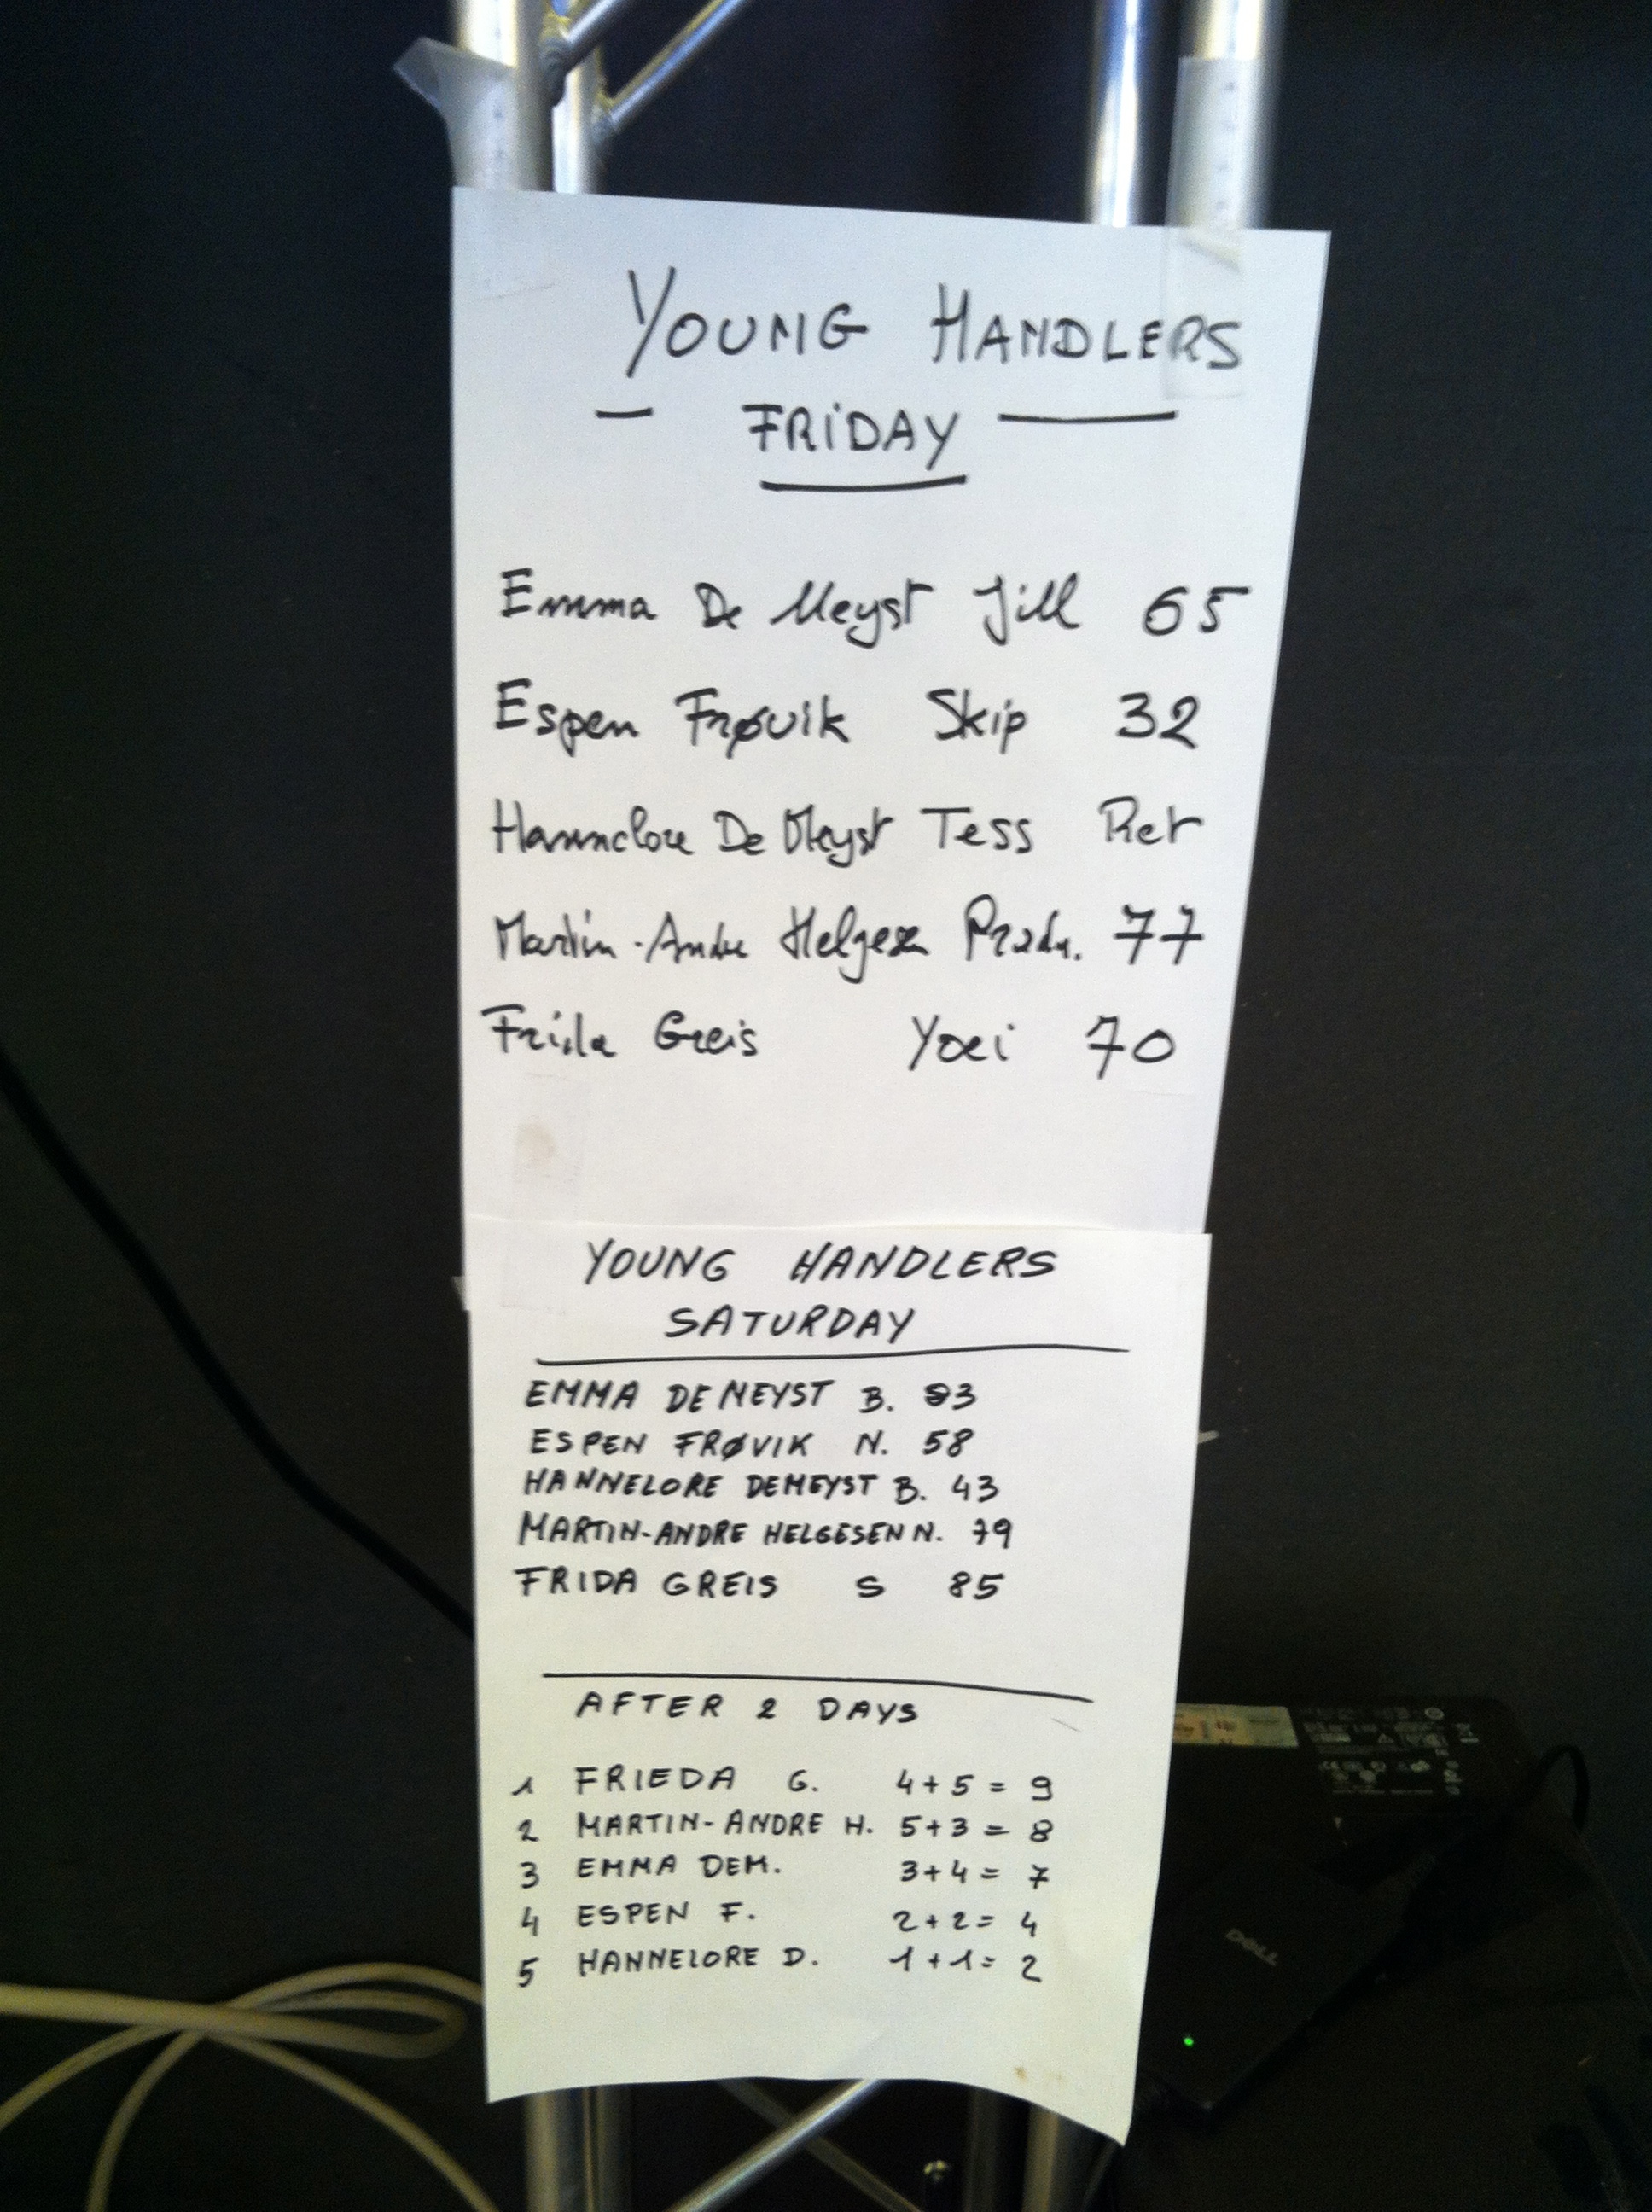 YOUNG HANDLERS
— FRIDAY —
Emma De Meyst Jill 65
Espen Frøvik Skip 32
Hannelore De Meyst Tess Ret
Martin-Andre Helgesen 77
Frida Greis 70
YOUNG HANDLERS
SATURDAY
EMMA DEMEYST B. 83
ESPEN FRØVIK N. 58
HANNELORE DEMEYST B. 43
MARTIN-ANDRE HELGESEN N. 79
FRIDA GREIS S 85
AFTER 2 DAYS
1 FRIEDA G. 4+5 = 9
2 MARTIN-ANDRE H. 5+3 = 8
3 EMMA DEM. 3+4 = 7
4 ESPEN F. 2+2 = 4
5 HANNELORE D. 1+1 = 2
DELL